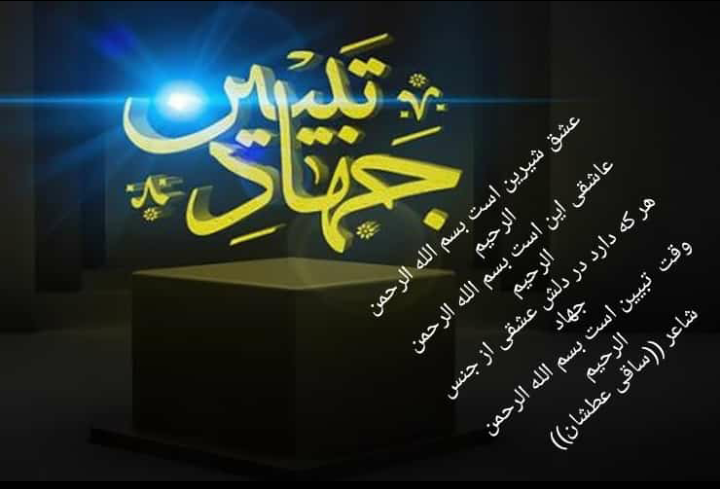 جَهادِ
تَبیین
عشق شیرین است بسم الله الرحمن
الرحیم
عاشقی این است بسم الله الرحمن
الرحیم
هر که دارد در دلش عشقی از جنس
جهاد
وقت تبیین است بسم الله الرحمن
الرحیم
شاعر ((ساقی عطشان))